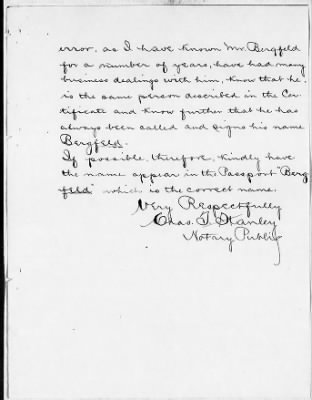 error, as I have known Mr. Bergfeld
for a number of years, have had many
business dealings with him, know that he
is the same person described in the Cer-
tificate and know further that he has
always been called and signs his name
Bergfeld.
If possible, therefore, kindly have
the name appear in the Passport "Berg
feld" which is the correct name.
Very Respectfully
Chas. T. Stanley
Notary Public